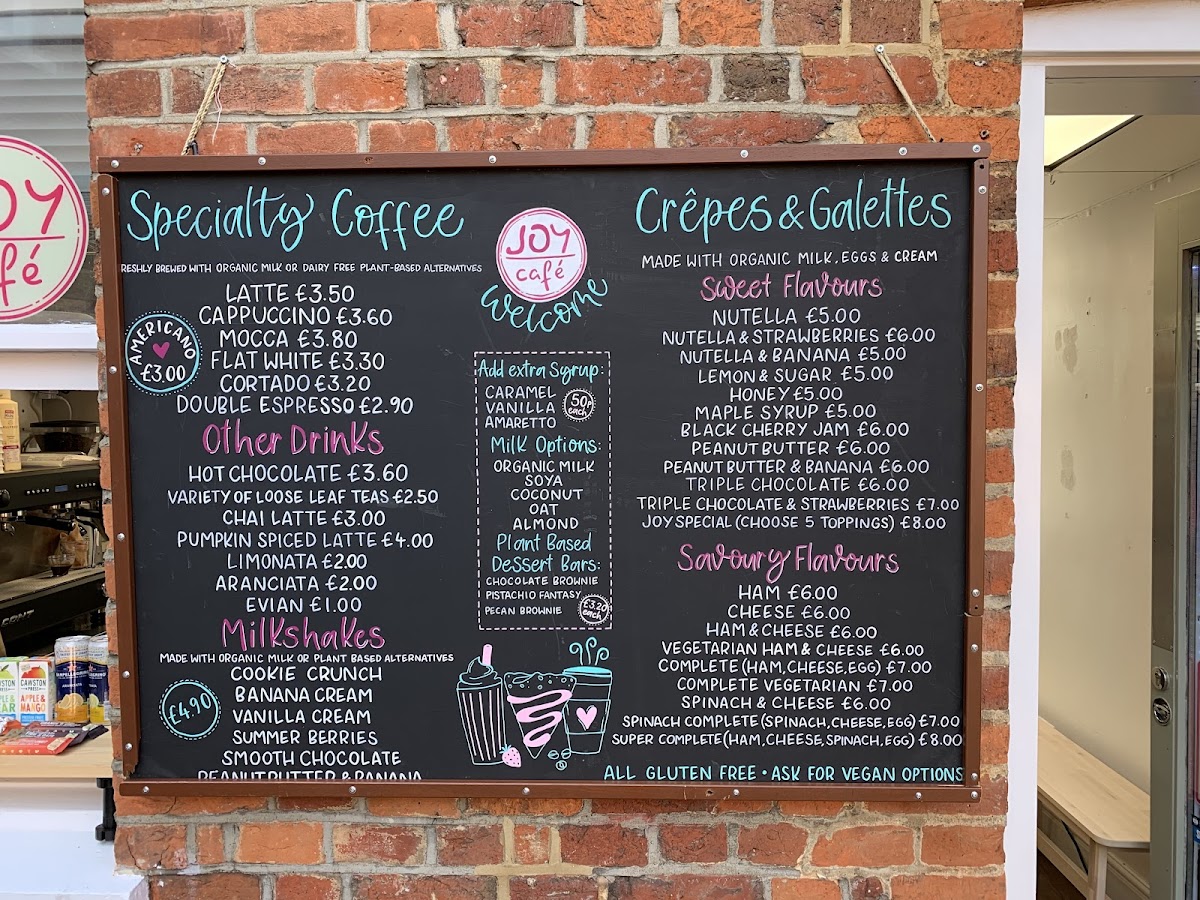 JOY
café
Specialty Coffee
RESHLY BREWED WITH ORGANIC MILK OR DAIRY FREE PLANT-BASED ALTERNATIVES
LATTE £3.50
CAPPUCCINO £3.60
MOCCA £3.80
FLAT WHITE £3.30
CORTADO £3.20
DOUBLE ESPRESSO £2.90
AMERICANO
£3.00
Other Drinks
HOT CHOCOLATE £3.60
VARIETY OF LOOSE LEAF TEAS £2.50
CHAI LATTE £3.00
PUMPKIN SPICED LATTE £4.00
LIMONATA £2.00
ARANCIATA £2.00
EVIAN £1.00
Milkshakes
MADE WITH ORGANIC MILK OR PLANT BASED ALTERNATIVES
£4.90
COOKIE CRUNCH
BANANA CREAM
VANILLA CREAM
SUMMER BERRIES
SMOOTH CHOCOLATE
PEANUTBUTTER & BANANA
Welcome
Add extra Syrup:
CARAMEL
VANILLA
AMARETTO
50p
each
Milk Options:
ORGANIC MILK
SOYA
COCONUT
OAT
ALMOND
Plant Based
Dessert Bars:
CHOCOLATE BROWNIE
PISTACHIO FANTASY
PECAN BROWNIE
£3.20
each
Crêpes & Galettes
MADE WITH ORGANIC MILK, EGGS & CREAM
Sweet Flavours
NUTELLA £5.00
NUTELLA & STRAWBERRIES £6.00
NUTELLA & BANANA £5.00
LEMON & SUGAR £5.00
HONEY £5.00
MAPLE SYRUP £5.00
BLACK CHERRY JAM £6.00
PEANUT BUTTER £6.00
PEANUT BUTTER & BANANA £6.00
TRIPLE CHOCOLATE £6.00
TRIPLE CHOCOLATE & STRAWBERRIES £7.00
JOY SPECIAL (CHOOSE 5 TOPPINGS) £8.00
Savoury Flavours
HAM £6.00
CHEESE £6.00
HAM & CHEESE £6.00
VEGETARIAN HAM & CHEESE £6.00
COMPLETE (HAM, CHEESE, EGG) £7.00
COMPLETE VEGETARIAN £7.00
SPINACH & CHEESE £6.00
SPINACH COMPLETE (SPINACH, CHEESE, EGG) £7.00
SUPER COMPLETE (HAM, CHEESE, SPINACH, EGG) £8.00
ALL GLUTEN FREE • ASK FOR VEGAN OPTIONS
OY
fé
CAWSTON
PRESS
APPLE &
MANGO